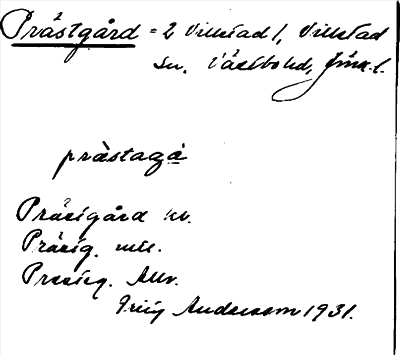 Prästgård = 2 Villstad 1, Villstad
sn. Västbo hd, Jönk. l.
prästagå
Prästgård kv.
Prästg. mtl.
Prestg.
Andersson 1931.